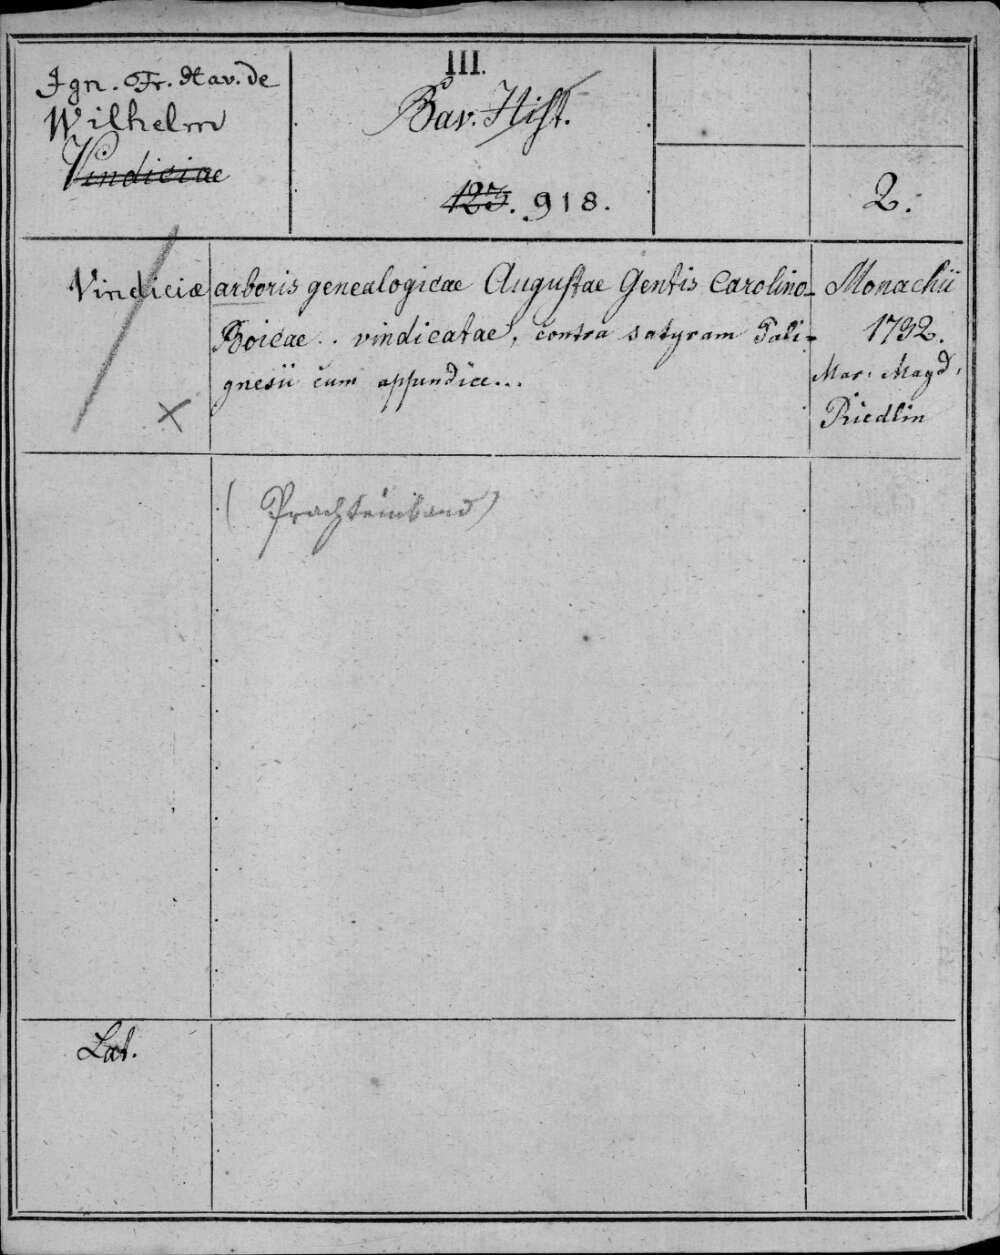 Ign. Fr. Xav. de
Wilhelm
Vindiciae
III.
Bav. Hist.
123. 918.
2.
Vindiciæ arboris genealogicae Augustae Gentis Carolino-
Boicae .. vindicatae, contra satyram Pali-
gnesii cum appendice...
Monachii
1732.
Mar. Magd.
Riedlin
(Prachteinband)
Lat.